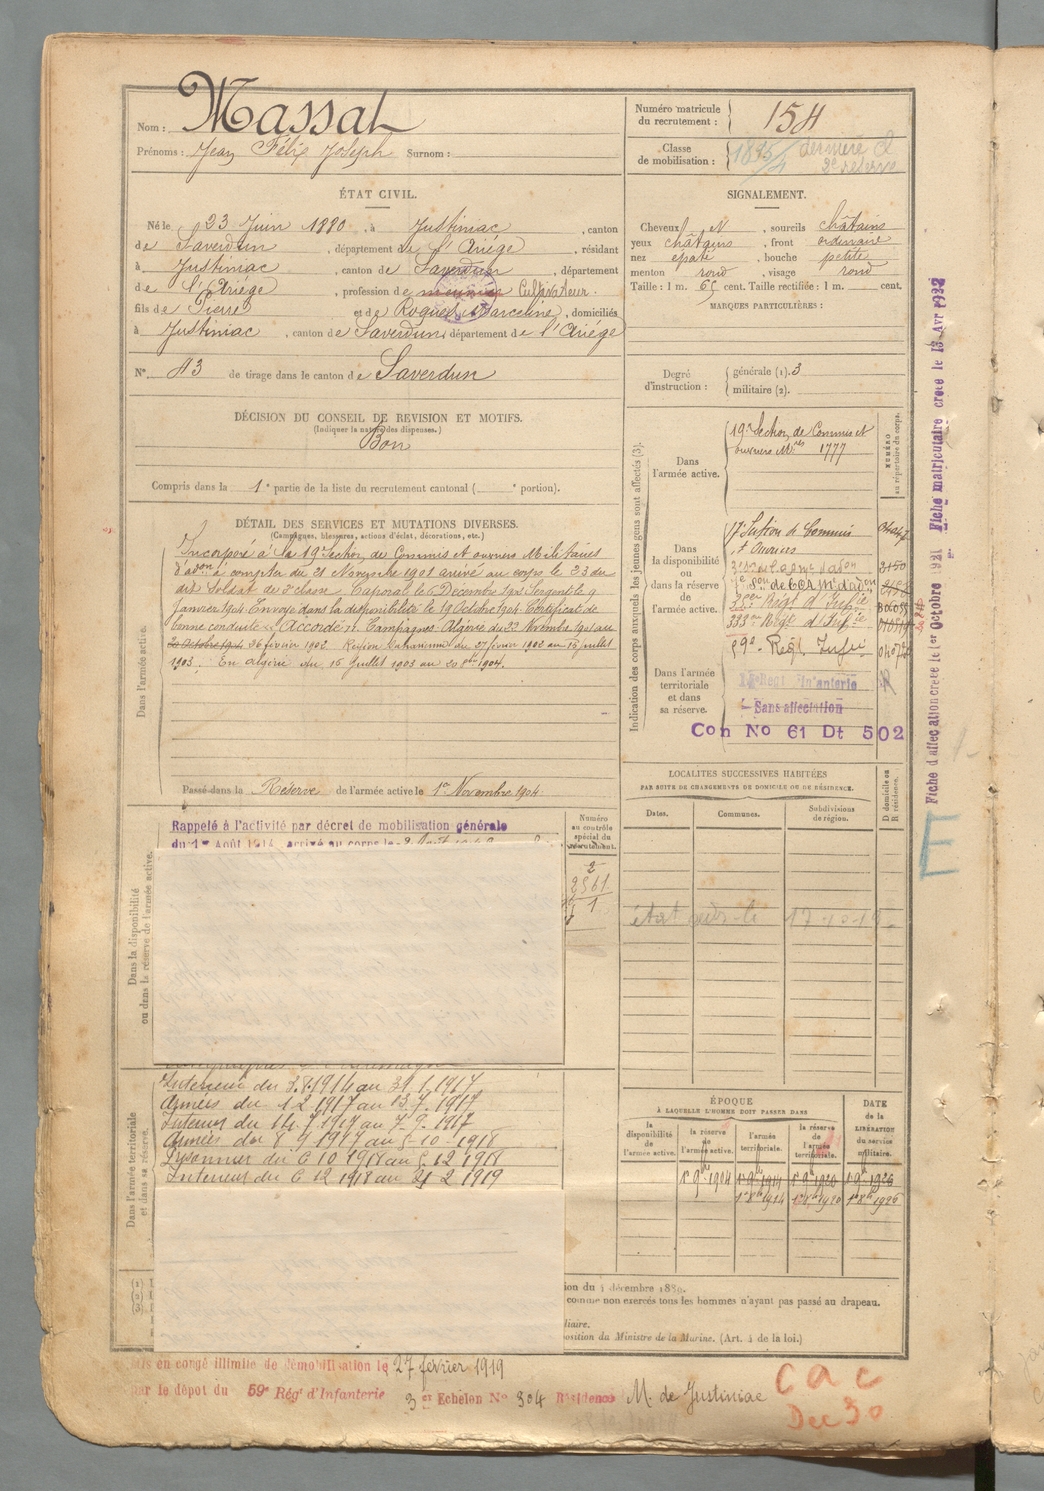 Nom : Massat
Prénoms : Jean Félix Joseph Surnom :
Numéro matricule du recrutement : 154
Classe de mobilisation : dernière Cl
2e réserve
ÉTAT CIVIL.
Né le 23 Juin 1880, à Justiniac, canton
de Saverdun, département de l'Ariége, résidant
à Justiniac, canton de Saverdun, département
de l'Ariége, profession de Cultivateur.
fils de Pierre et de Roques Marceline, domiciliés
à Justiniac, canton de Saverdun, département de l'Ariége
N° 43 de tirage dans le canton de Saverdun
SIGNALEMENT.
Cheveux N, sourcils châtains
yeux châtains, front ordinaire
nez epaté, bouche petite
menton rond, visage rond
Taille : 1 m. 65 cent. Taille rectifiée : 1 m. cent.
MARQUES PARTICULIÈRES :
Degré d'instruction : générale (1). 3
militaire (2).
DÉCISION DU CONSEIL DE REVISION ET MOTIFS.
(Indiquer la nature des dispenses.)
Bon
Compris dans la 1e partie de la liste du recrutement cantonal ( e portion).
DÉTAIL DES SERVICES ET MUTATIONS DIVERSES.
(Campagnes, blessures, actions d'éclat, décorations, etc.)
Dans l'armée active.
Incorporé à la 19e Section de Commis et ouvriers Militaires
d'adon à compter du 21 Novembre 1901 arrivé au corps le 23 du
dit Soldat de 2e classe Caporal le 6 Décembre 1902 Sergent le 9
Janvier 1904. Envoyé dans la disponibilité le 19 Octobre 1904. Certificat de
bonne conduite "Accordé". Campagnes Algérie du 23 Novembre 1901 au
20 Octobre 1904 26 février 1902. Région Saharienne du 27 février 1902 au 15 Juillet
1903. En algérie du 16 Juillet 1903 au 20 8bre 1904.
Passé dans la Réserve de l'armée active le 1er Novembre 1904
Indication des corps auxquels les jeunes gens sont affectés (3).
NUMÉRO au répertoire du corps.
Dans l'armée active.
19e Section de Commis et
ouvriers Mres 1777
Dans la disponibilité ou dans la réserve de l'armée active.
17e Section de Commis
et Ouvriers
333me Régt d'Infrie
59e Régt Infrie
Dans l'armée territoriale et dans sa réserve.
Régt d'Infanterie
Sans affectation
Con No 61 Dt 502
LOCALITÉS SUCCESSIVES HABITÉES
PAR SUITE DE CHANGEMENTS DE DOMICILE OU DE RÉSIDENCE.
Dates. Communes. Subdivisions de région. D domicile ou R résidence.
Rappelé à l'activité par décret de mobilisation générale
du 1er Août 1914, arrivé au corps le
Numéro au contrôle spécial du recrutement.
2
2561
1
Dans la disponibilité ou dans la réserve de l'armée active.
Dans l'armée territoriale et dans sa réserve.
Intérieur du 3.8.1914 au 31.1.1917
Armées du 1 2 1917 au 13.7.1917
Intérieur du 14.7.1917 au 7.9.1917
Armées du 8 9 1917 au 5-10-1918
Prisonnier du 6 10 1918 au 5 12 1918
Intérieur du 6 12 1918 au 21 2 1919
ÉPOQUE
À LAQUELLE L'HOMME DOIT PASSER DANS
la disponibilité de l'armée active. la réserve de l'armée active. l'armée territoriale. la réserve de l'armée territoriale.
DATE de la LIBÉRATION du service militaire.
1er 9bre 1904 1er 9bre 1914 1er 9bre 1920 1er 9bre 1926
1er 8bre 1914 1er 8bre 1920 1er 8bre 1926
(1)
(2)
(3)
ion du 4 décembre 1889.
comme non exercés tous les hommes n'ayant pas passé au drapeau.
liaire.
position du Ministre de la Marine. (Art. 4 de la loi.)
Mis en congé illimité de démobilisation le 27 février 1919
par le dépot du 59e Régt d'Infanterie 3 Echelon No 304 Résidence M. de Justiniac
cac
Dec 30
Fiche d'affectation créée le 1er Octobre 1921
Fiche matriculaire créée le 13 Avr 1932
E